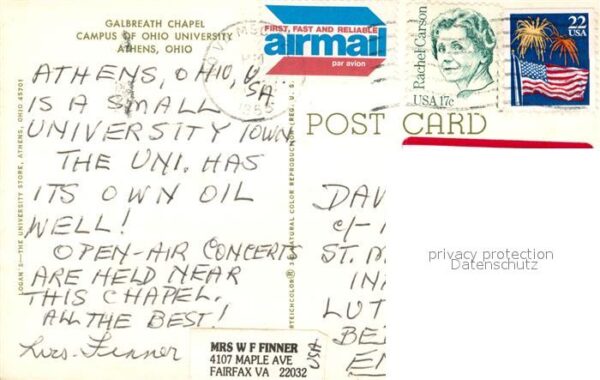 GALBREATH CHAPEL
CAMPUS OF OHIO UNIVERSITY
ATHENS, OHIO
FIRST, FAST AND RELIABLE
airmail
par avion
Rachel Carson
USA 17c
22
USA
ATHENS, OHIO, U
SA
IS A SMALL
UNIVERSITY TOWN
THE UNI. HAS
ITS OWN OIL
WELL!
OPEN-AIR CONCERTS
ARE HELD NEAR
THIS CHAPEL.
ALL THE BEST!
Lois Finner
LOGAN'S—THE UNIVERSITY STORE, ATHENS, OHIO 45701
NATURAL COLOR REPRODUCTION REG. U. S.
POST CARD
DAV
c/-
ST. M
IN
LUT
BE
E
privacy protection
Datenschutz
MRS W F FINNER
4107 MAPLE AVE
FAIRFAX VA 22032
USA